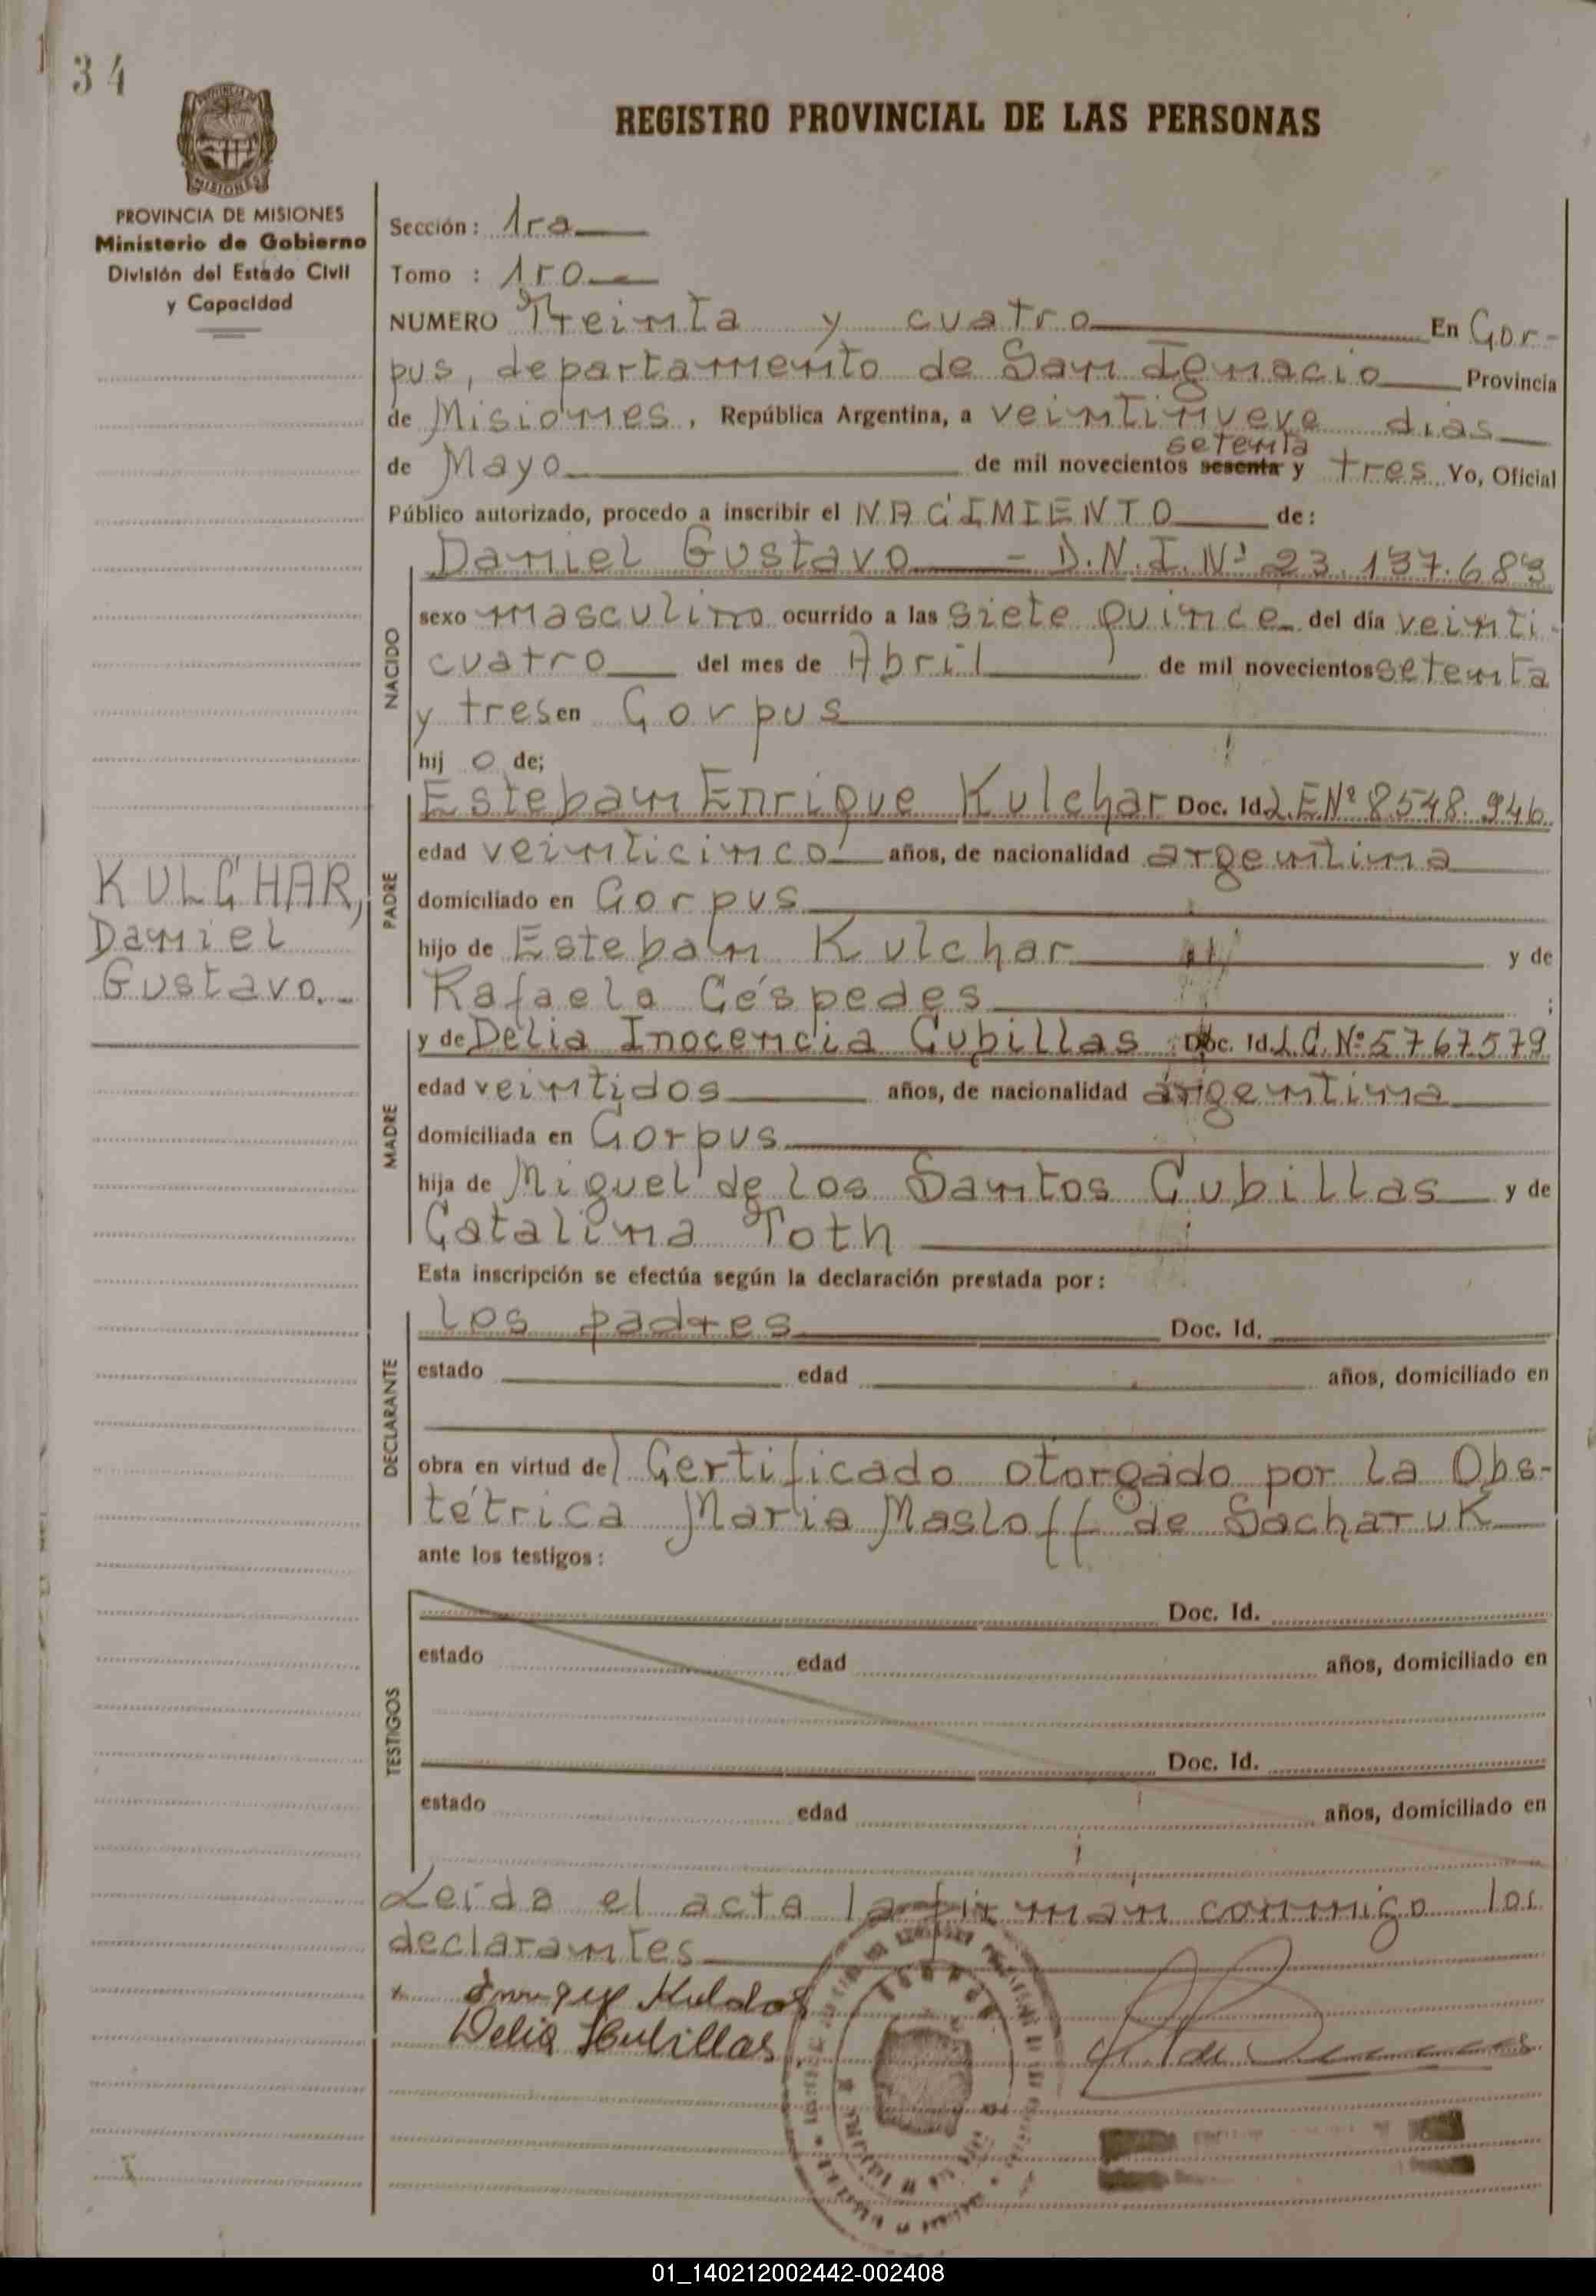 34
REGISTRO PROVINCIAL DE LAS PERSONAS
PROVINCIA DE MISIONES
MISIONES
PROVINCIA DE MISIONES
Ministerio de Gobierno
División del Estado Civil
y Capacidad
Sección: 1ra
Tomo : 1ro
NUMERO Treinta y cuatro En Cor-
pus, departamento de San Ignacio Provincia
de Misiones, República Argentina, a veintinueve días
setenta
de Mayo de mil novecientos sesenta y tres Yo, Oficial
Público autorizado, procedo a inscribir el NACIMIENTO de:
Daniel Gustavo - D.N.I. Nº 23.137.683
NACIDO
sexo masculino ocurrido a las siete quince del día veinti-
cuatro del mes de Abril de mil novecientos setenta
y tres en Corpus
hij o de;
PADRE
Esteban Enrique Kulchar Doc. Id L.E Nº 8548.946
edad veinticinco años, de nacionalidad argentina
domiciliado en Corpus
hijo de Esteban Kulchar y de
Rafaela Céspedes ;
KULCHAR,
Daniel
Gustavo.-
MADRE
y de Delia Inocencia Cubillas Doc. Id L.C. Nº 5767579
edad veintidos años, de nacionalidad argentina
domiciliada en Corpus
hija de Miguel de los Santos Cubillas y de
Catalina Toth
Esta inscripción se efectúa según la declaración prestada por:
DECLARANTE
los padres Doc. Id.
estado edad años, domiciliado en
obra en virtud del Certificado otorgado por la Obs-
tétrica Maria Masloff de Sacharuk
ante los testigos:
TESTIGOS
Doc. Id.
estado edad años, domiciliado en
Doc. Id.
estado edad años, domiciliado en
Leída el acta la firman conmigo los
declarantes
Delia Cubillas
01_140212002442-002408